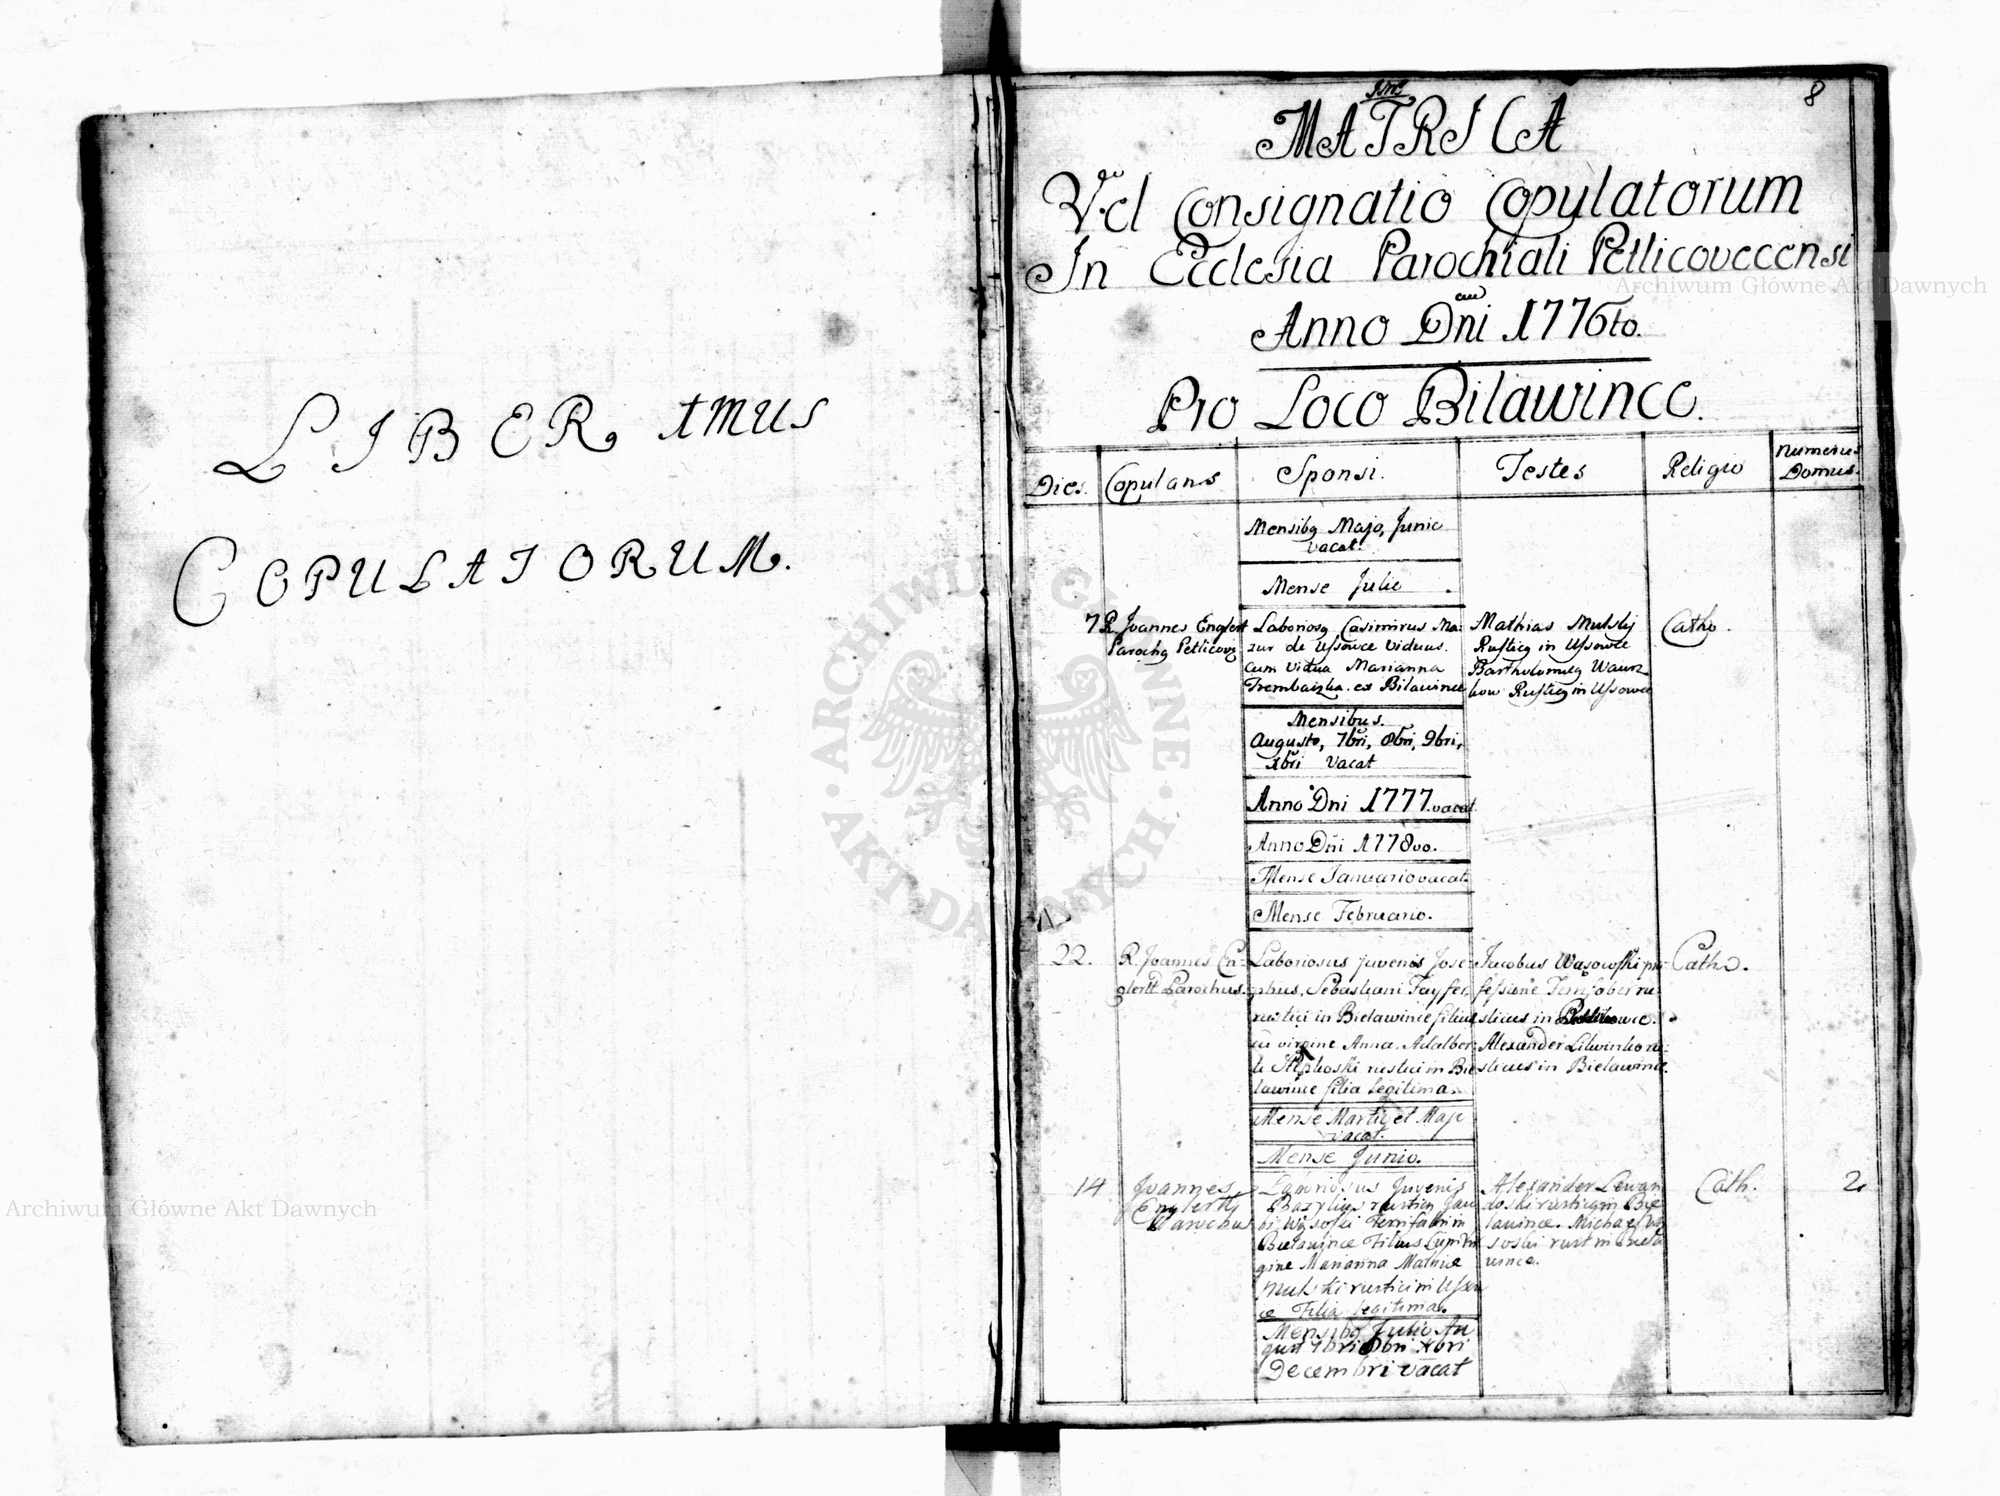 LIBER 1MUS
COPULATORUM.
8
MATRICA
Vel Consignatio Copulatorum
In Ecclesia Parochiali Petlicovecensi
Anno Dni 1776to.
Pro Loco Bilawince.
Dies. Copulans Sponsi. Testes Religio Numerus Domus.
Mensibq Majo, Junio
vacat.
Mense Julio
7 R. Joannes Englert
Parochq Petlicovq
Laboriosq Casimirus Ma-
zur de Ussowce viduus.
cum vidua Marianna
Trembaczka ex Bilawince
Mathias Mulskij
Rusticq in Ussowce
Bartholomeq Wawrz-
kow Rusticq in Ussowce
Catho.
Mensibus.
Augusto, 7bri, 8bri, 9bri,
xbri vacat
Anno Dni 1777. vacat
Anno Dni 1778vo.
Mense Januario vacat
Mense Februario.
22. R. Joannes En-
glertt Parochus.
Laboriosus juvenis Jose-
phus, Sebastiani Fayfer,
rustici in Bielawince filius
cu virgine Anna Adalber-
ti rustici in Bie
lawince filia legitima.
Jacobus Wąsowski pro
fessione ru-
sticus in
Alexander Litwinko ru-
sticus in Bielawince.
Catho.
Mense Martij et Maji
vacat.
Mense Junio.
14 Joannes
Englertt
Parochus
Laboriosus Juvenis
Bazylius rustici Jaco
bi in
Bielawince Filius Cu Vir
gine Marianna Mathiae
Mulski rustici in Usow
ce Filia legitima.
Alexander Lewan
doski rusticq in Bie
lawince. Michael Wą
soski rust in Biela
wince.
Cath.
2
Mensibq Julio Au
gust 7bri 8bri xbri
Decembri vacat
Archiwum Główne Akt Dawnych
Archiwum Główne Akt Dawnych
ARCHIWUM GŁÓWNE AKT DAWNYCH